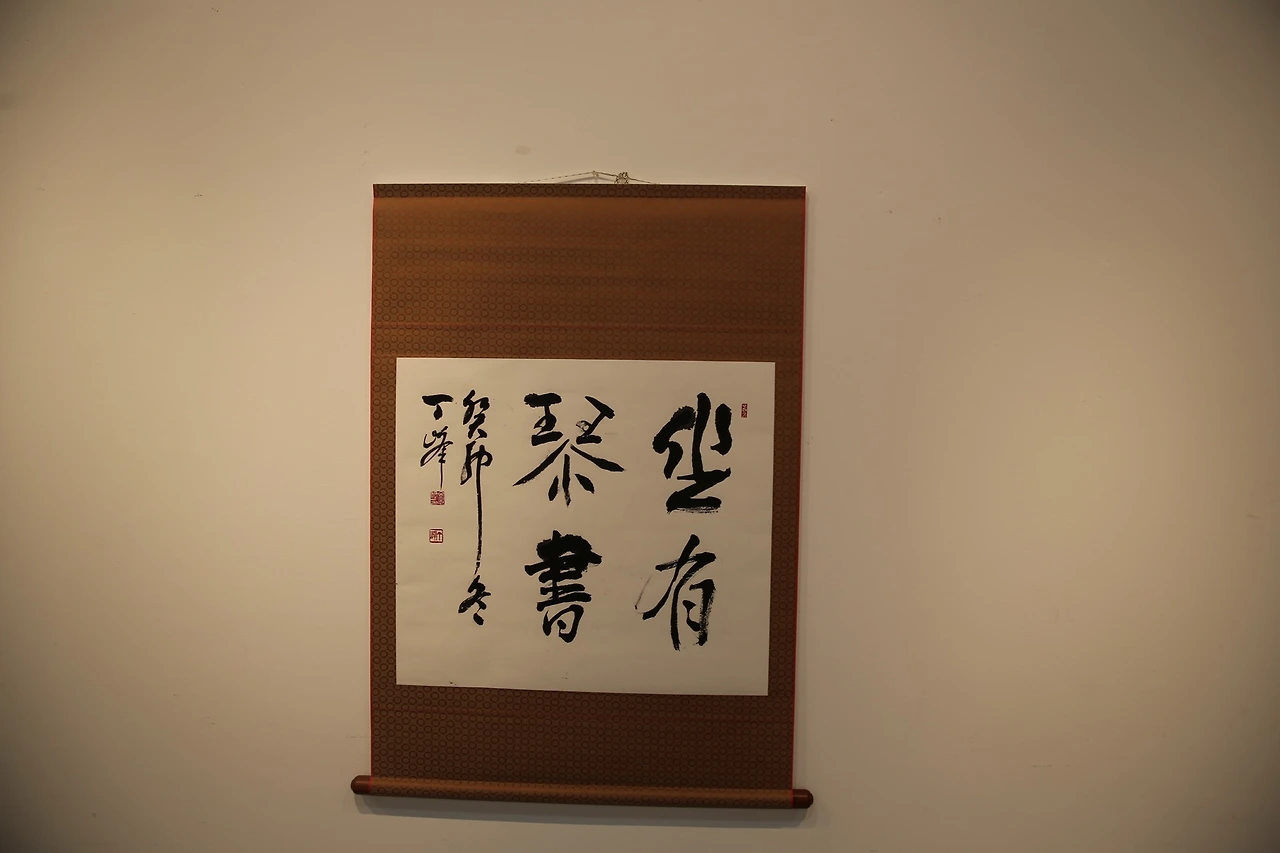 坐有
琴書
癸卯冬
丁峰